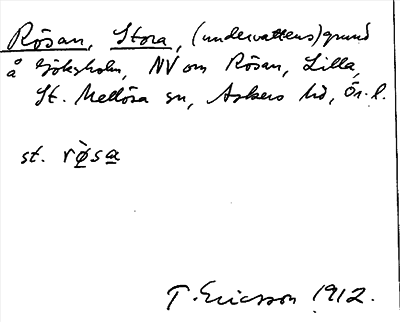 Rösan, Stora, (undervattens)grund
å Göksholm, NV om Rösan, Lilla,
St. Mellösa sn, Askers hd, Ör. l.
st. rø̀sa
T. Ericsson 1912.